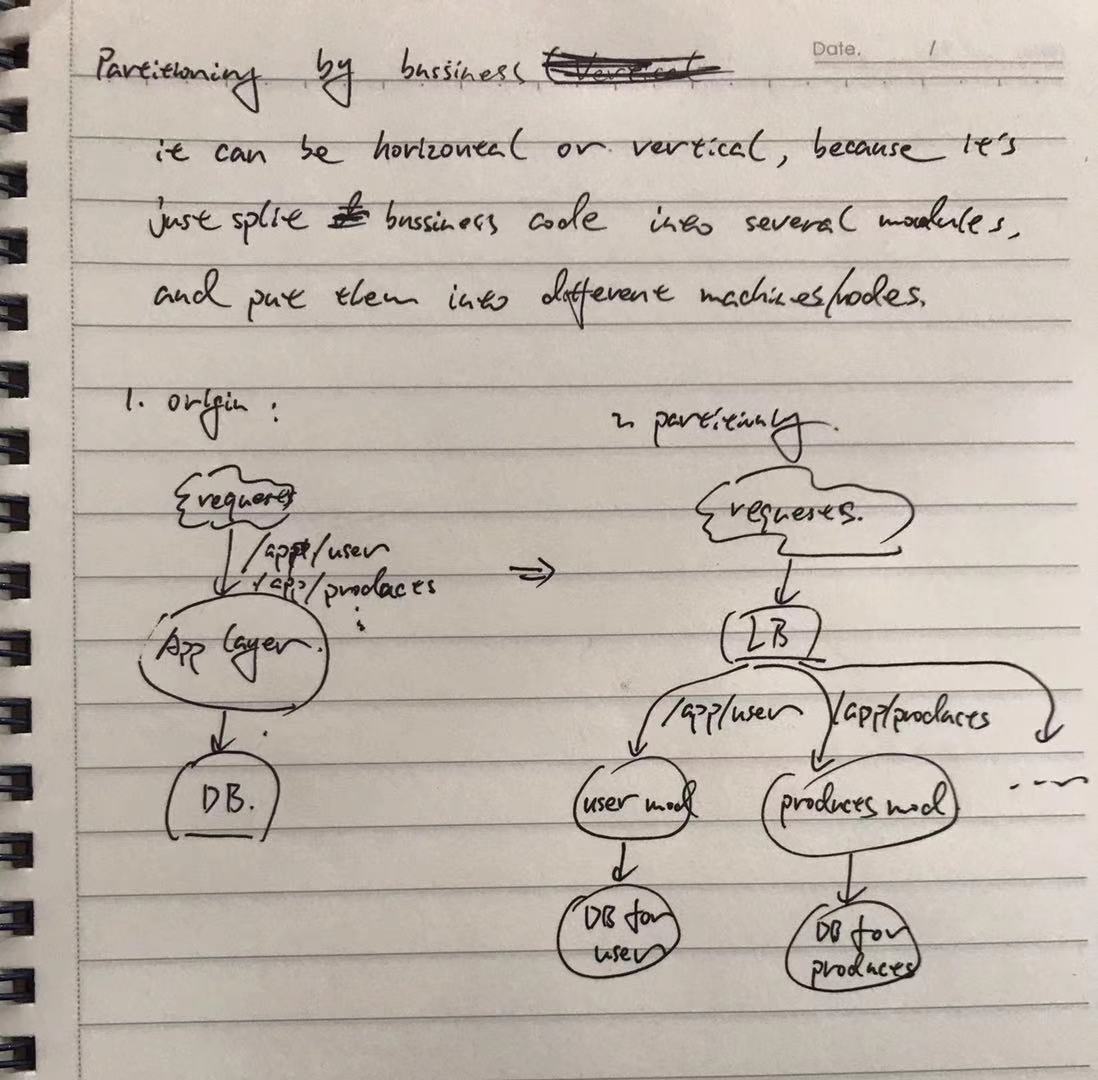 Date. /
Partitioning by bussiness (Vertical
it can be horizontal or vertical, because it's
just split bussiness code into several modules,
and put them into different machines/nodes.
1. origin :
requests
/app/user
/app/products
App layer.
DB.
⇒
2. partitionly.
requests.
LB
/app/user
/app/products
user mod
products mod
----
DB for
user
DB for
products